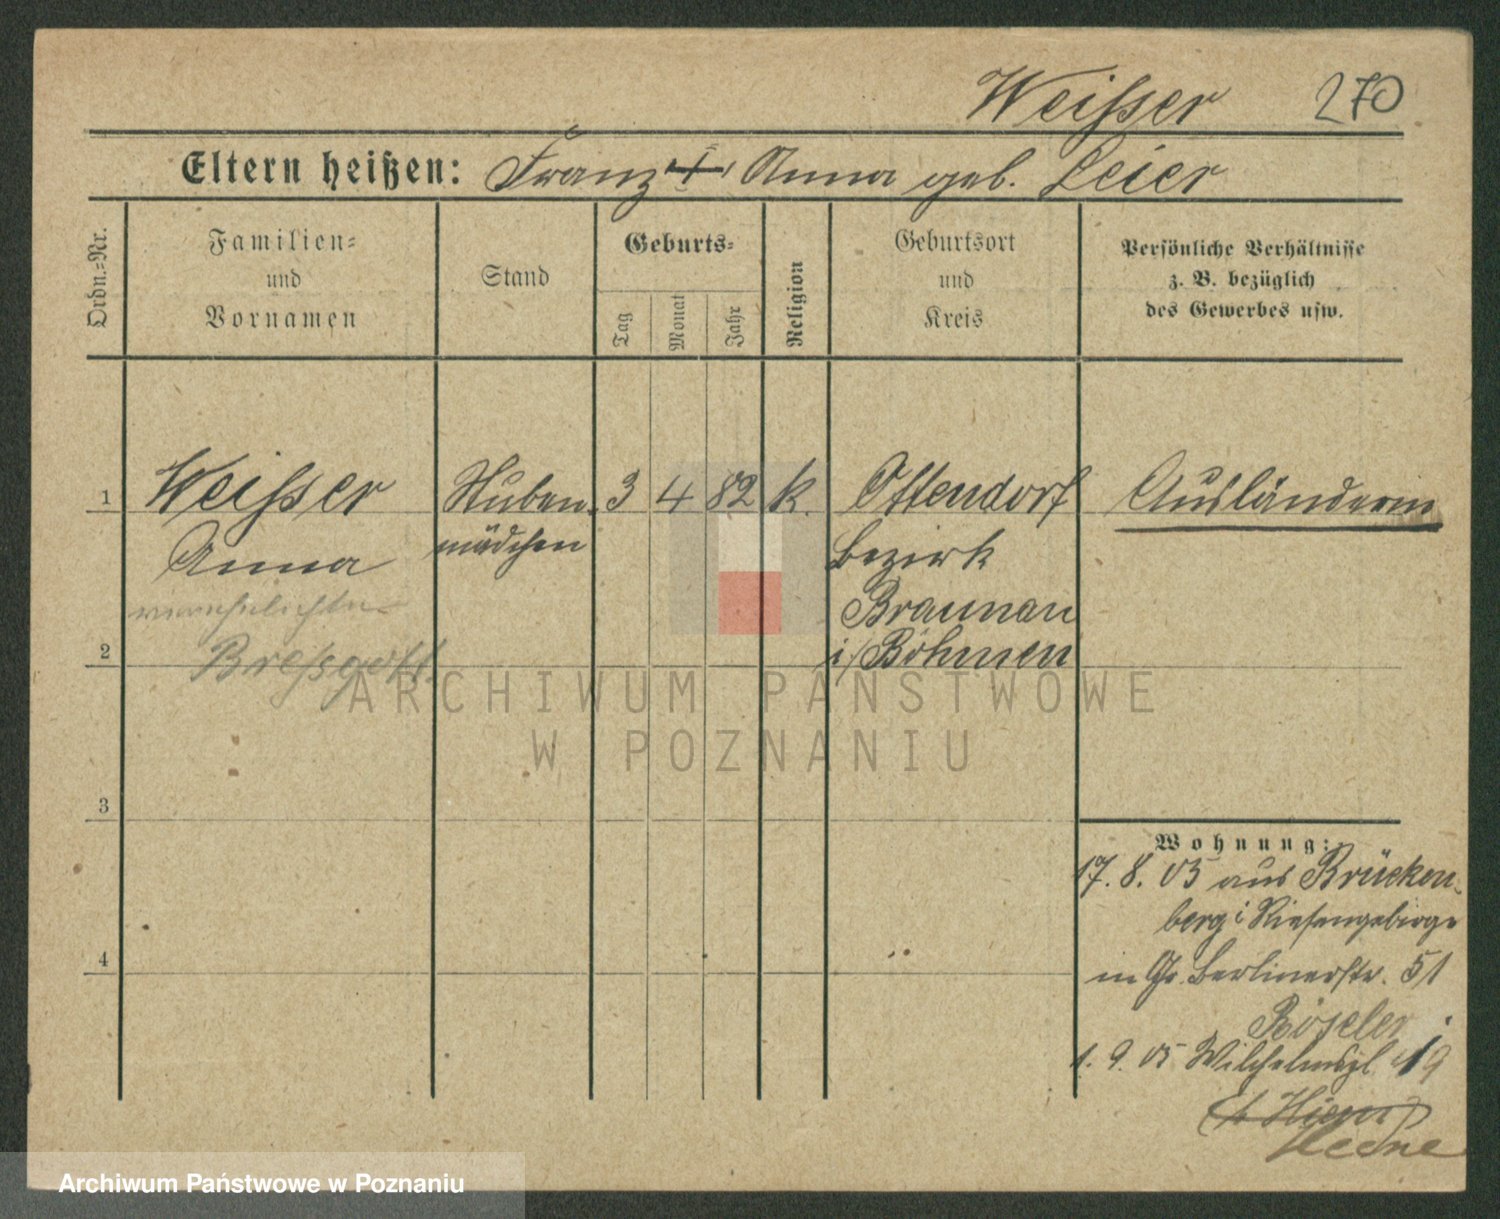 Weisser 270
Eltern heißen: Franz + Anna geb. Leier
Ordn.-Nr.
Familien-
und
Vornamen
Stand
Geburts-
Tag
Monat
Jahr
Religion
Geburtsort
und
Kreis
Persönliche Verhältnisse
z. B. bezüglich
des Gewerbes usw.
1 Weisser Stuben- 3 4 82 k. Ottendorf Ausländerin
Anna mädchen Bezirk
verehelichte Braunau
2 i/Böhmen
ARCHIWUM PAŃSTWOWE
W POZNANIU
3
Wohnung:
17. 8. 05 aus Brücken-
berg i Riesengebirge
4
in Gr. Berlinerstr. 51
Röseler
1. 9. 05 Wilhelmspl. 19
Archiwum Państwowe w Poznaniu